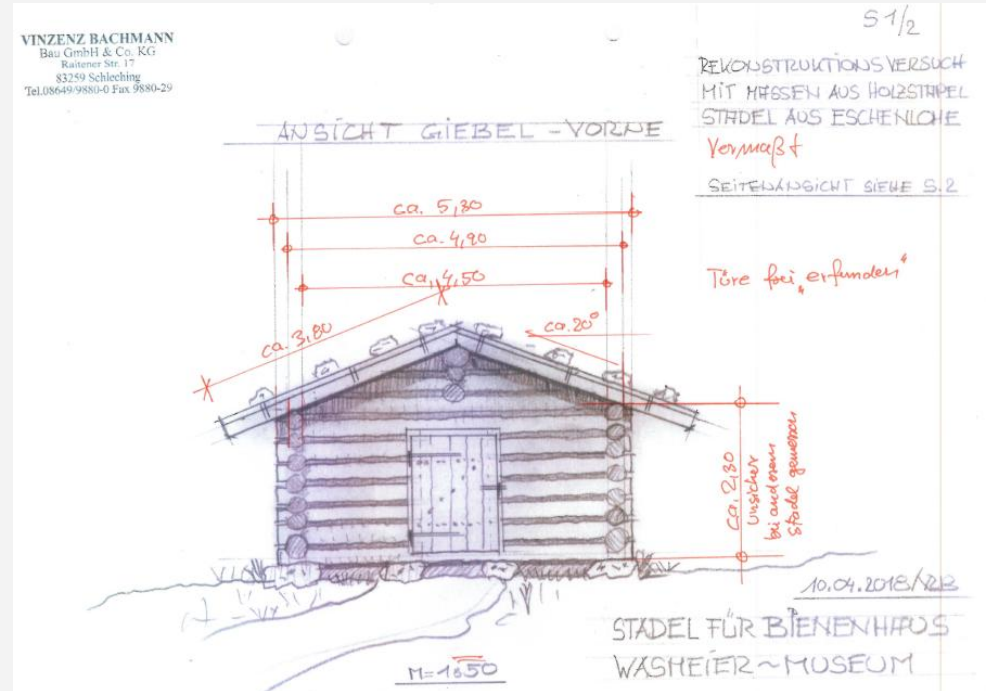 VINZENZ BACHMANN
Bau GmbH & Co. KG
Raitener Str. 17
83259 Schleching
Tel.08649/9880-0 Fax 9880-29
S 1/2
REKONSTRUKTIONSVERSUCH
MIT MASSEN AUS HOLZSTAPEL
STADEL AUS ESCHENLOHE
Vermaßt
SEITENANSICHT SIEHE S.2
ANSICHT GIEBEL - VORNE
Türe frei „erfunden"
ca. 5,30
ca. 4,90
ca. 4,50
ca. 3,80
ca. 20°
ca. 2,30
unsicher
bei anderem
Stadel gemessen
10.04.2018/
STADEL FÜR BIENENHAUS
WASMEIER~MUSEUM
M=1:50